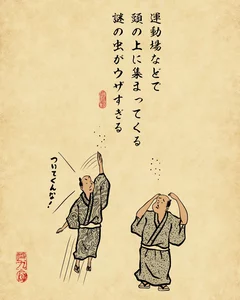 運動場などで
頭の上に集まってくる
謎の虫がウザすぎる
ついてくんな!